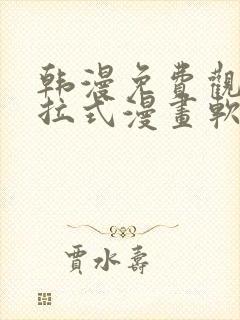 韩漫免費觀
拉式漫畫軟
賈水壽